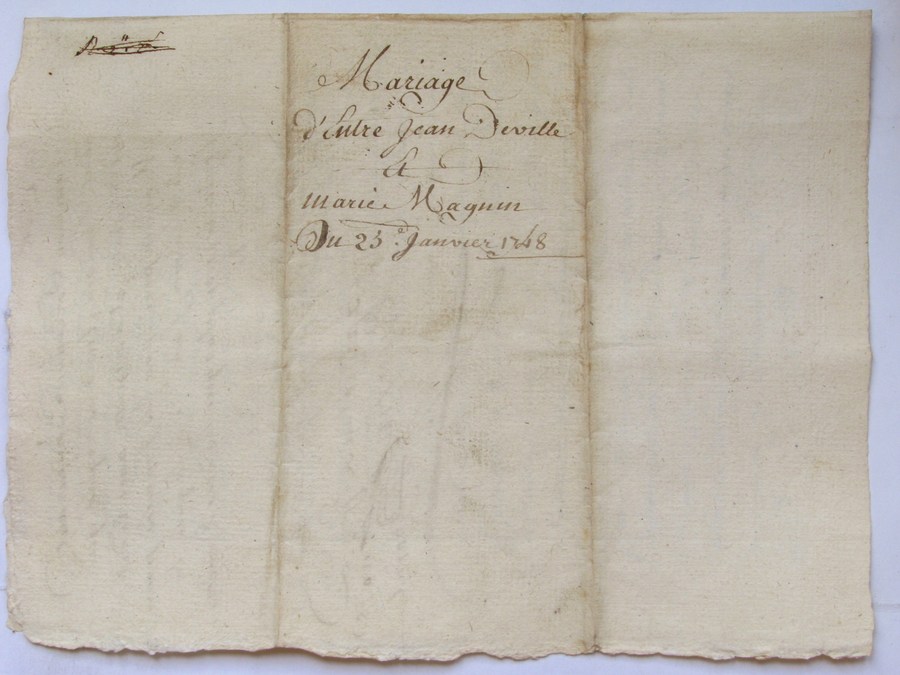 Mariage
d'Entre Jean Deville
Et
marie Magnin
Du 23e Janvier 1748